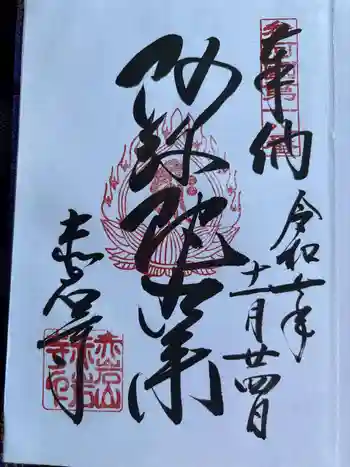 奉納
令和七年
十一月廿四日
阿弥陀如来
赤岩寺